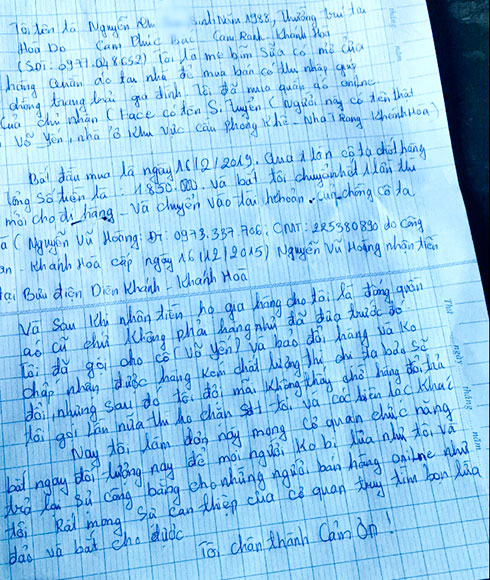 Tôi tên là Nguyễn Kh Sinh Năm 1988, Thường trú tại
Hoà Do Cam Phúc Bắc Cam Ranh - Khánh Hoà
(SĐT: 0971.048.652) Tôi là mẹ bỉm Sữa có mở cửa
hàng Quần áo tại nhà để mua bán có thu nhập giúp
chồng trang trải gia đình. Tôi đã mua quần áo online
Của chủ nhân (Face có tên S. Tuyên (Người này có tên thật
Võ Yến, nhà ở khu vực cầu phong Khê - Nha Trang Khánh Hoà)
Bắt đầu mua là ngày 16/12/2019. Qua 1 lần cô ta chốt hàng
tổng Số tiền là: 1.850.000. Và bắt tôi chuyển hết 1 lần thì
mới cho đi hàng - Và chuyển vào tài khoản của chồng cô ta
a (Nguyễn Vũ Hoàng: Dt: 0973.337.706. CMT: 225380890 do Công
an - Khánh Hoà cấp ngày 16/12/2015) Nguyễn Vũ Hoàng nhân tiền
tại Bưu điện Diên Khánh - Khánh Hoà
Và Sau Khi nhân tiền họ gia hàng cho tôi là đống quần
áo cũ chứ Không phải hàng như đã đưa trước đó
Tôi đã gọi cho cô (Võ Yến) Và bao đổi hàng và Ko
chấp nhân được hàng kém chất lượng thì chị ta bảo sẽ
đổi, nhưng sau đó tôi đợi mãi Không thấy chở hàng đổi trả
tôi gọi lần nữa thì họ chặn Sđt tôi và các liên lạc Khác
Nay tôi làm đơn này mong cơ quan chức năng
bắt ngay đối tượng này để mọi người Ko bị lừa như tôi và
trả lại Sự công bằng cho những người bán hàng online như
tôi Rất mong Sự can thiệp của cơ quan truy tìm bọn lừa
đảo và bắt cho được
Tôi chân thành Cảm ơn!